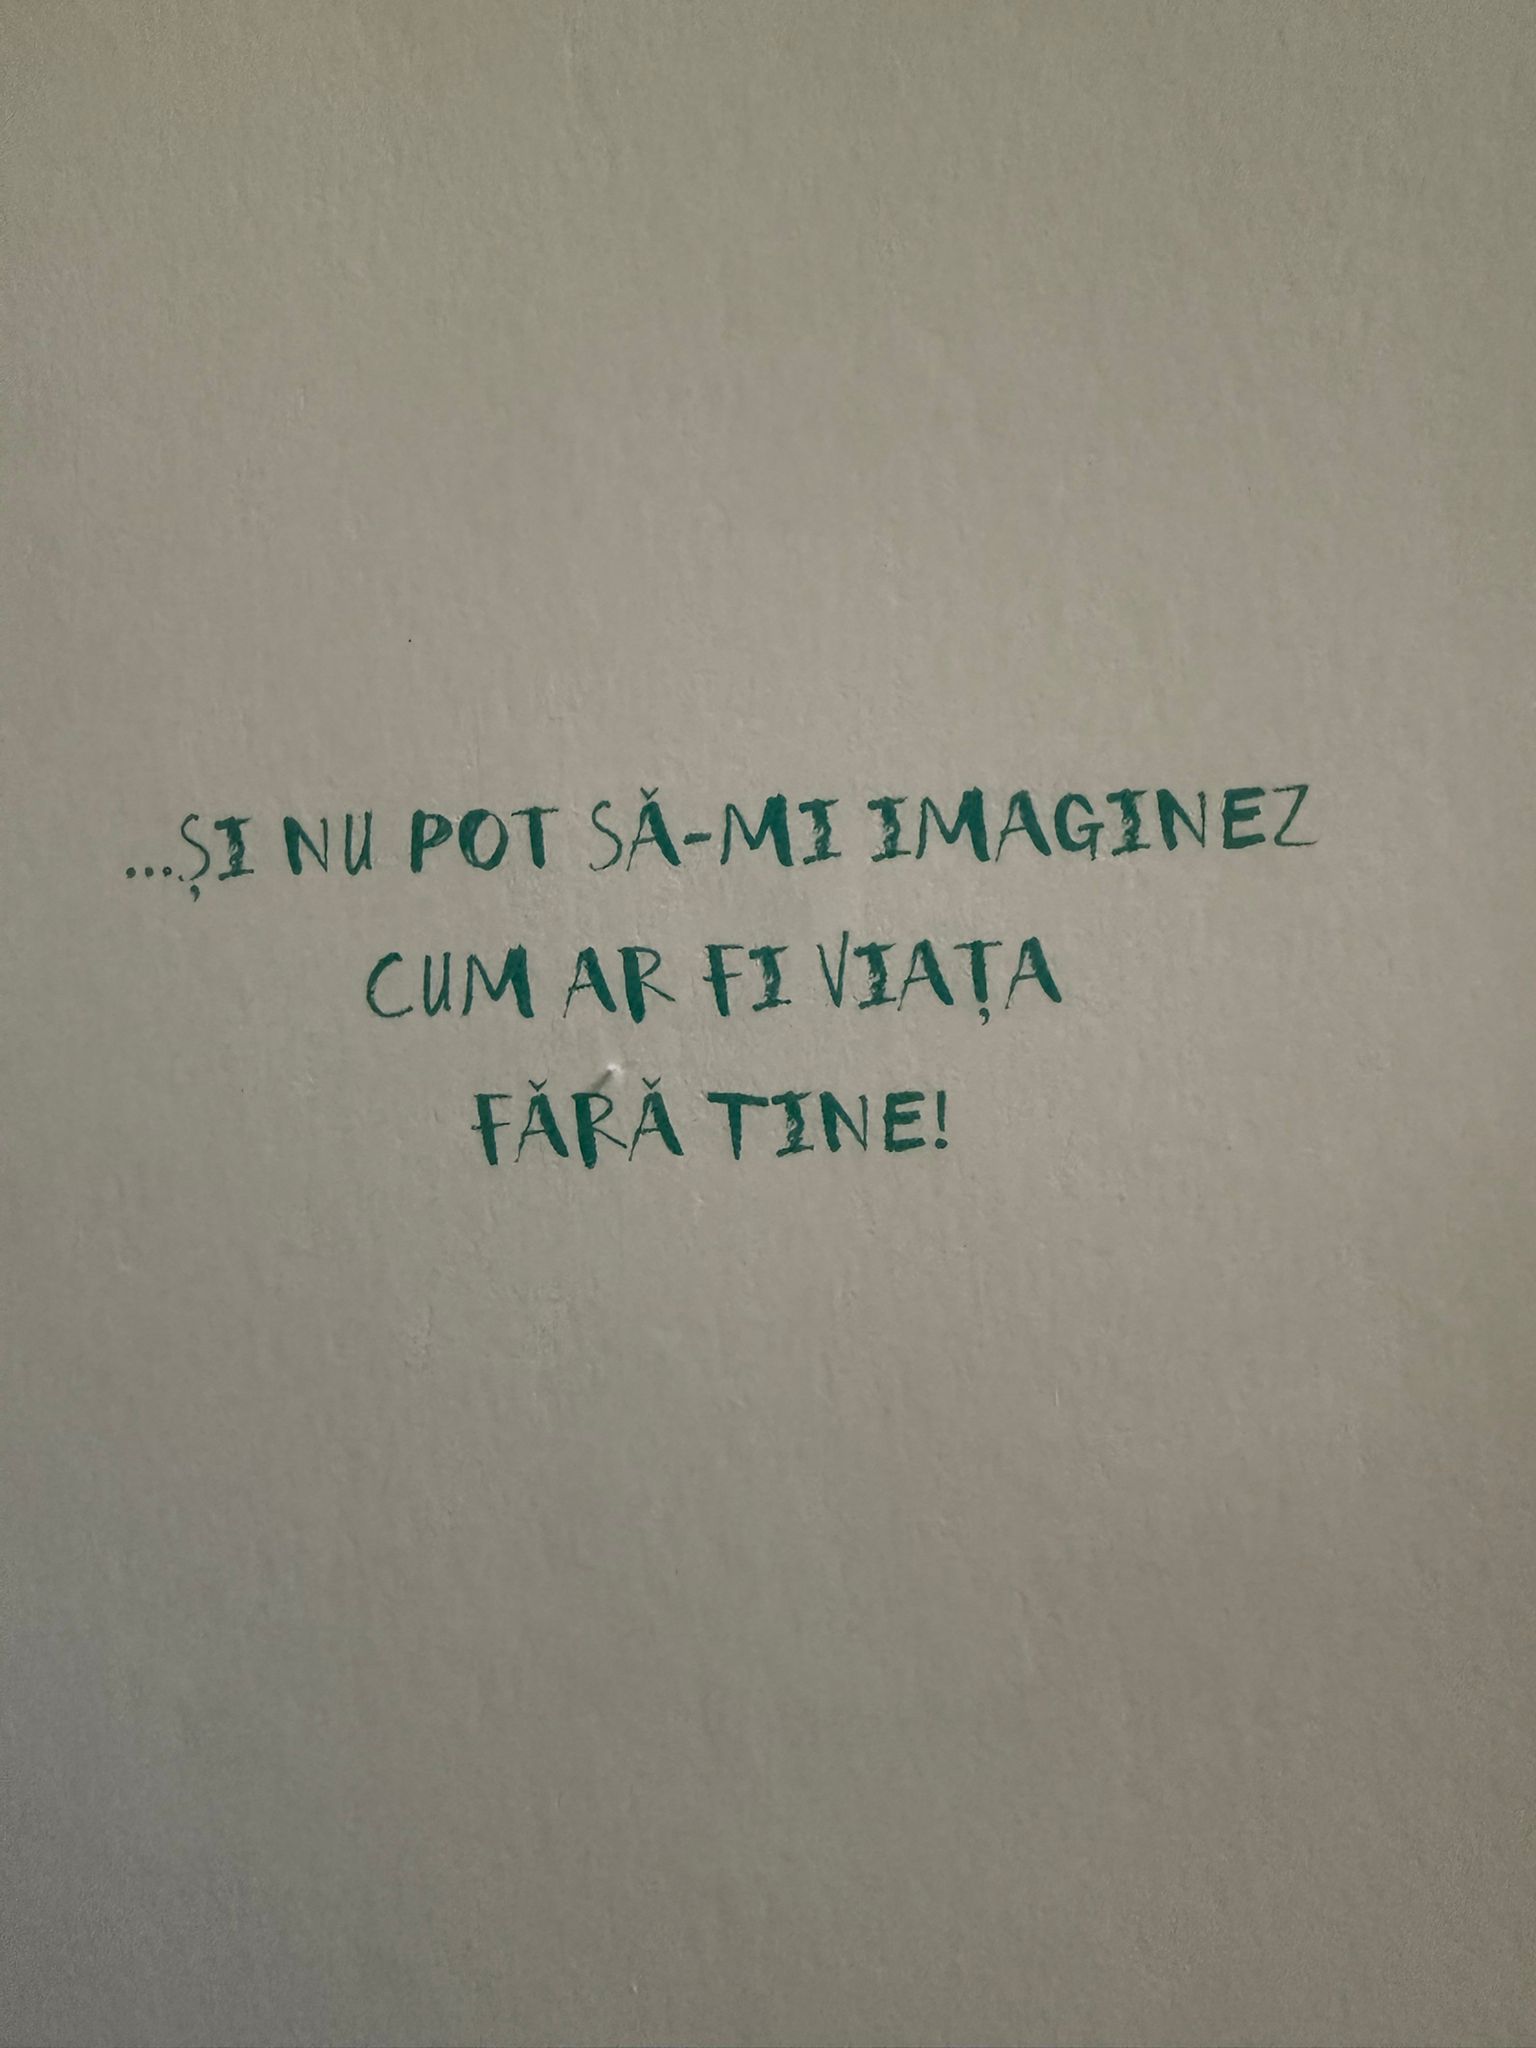 ...ȘI NU POT SĂ-MI IMAGINEZ
CUM AR FI VIAȚA
FĂRĂ TINE!